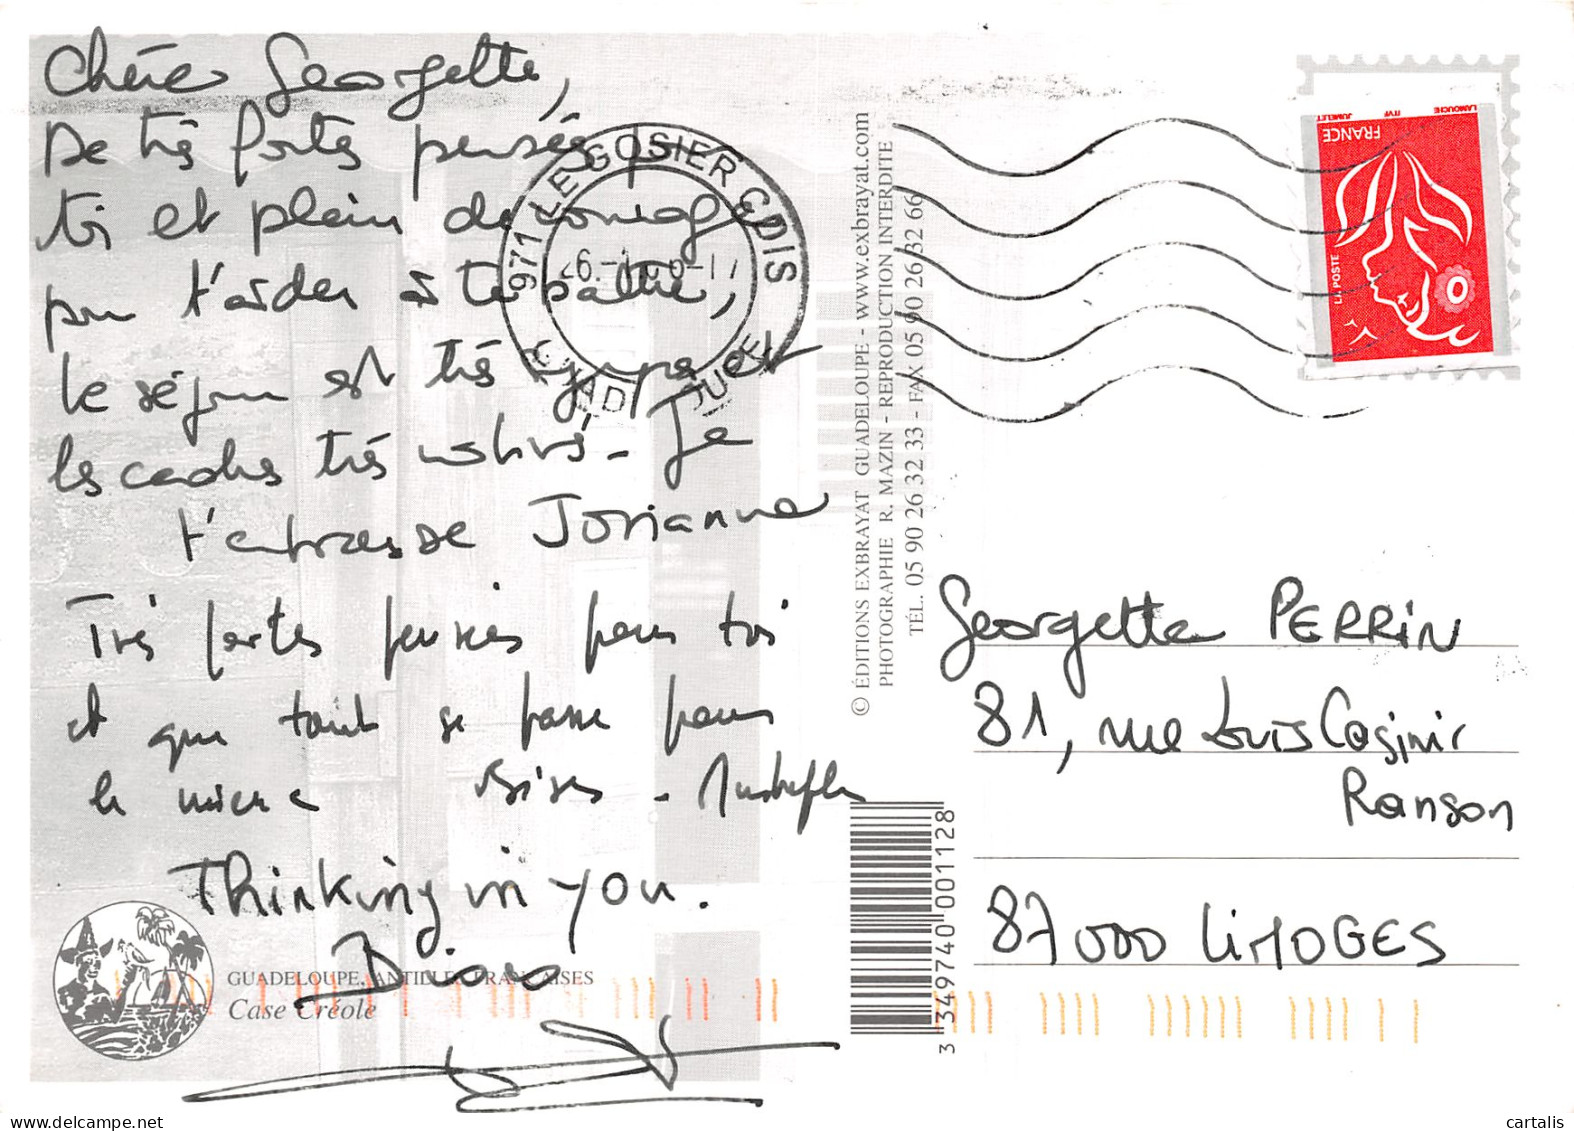 Chère Georgette,
De très fortes pensées
toi et plein de courage
pour t'aider à te battre,
le séjour est très sympa et
les cadres très
Je
t'embrasse Josianne
Très fortes pensées pour toi
et que tout se passe pour
le mieux Bises -
Thinking in you.
GUADELOUPE, ANTILLES FRANÇAISES
Case Créole
971 LE GOSIER CDIS
GUADELOUPE
© ÉDITIONS EXBRAYAT GUADELOUPE - www.exbrayat.com
PHOTOGRAPHIE R. MAZIN - REPRODUCTION INTERDITE
TÉL. 05 90 26 32 33 - FAX 05 90 26 32 66
3 349740 001128
FRANCE
LA POSTE
LAMOUCHE
ITVF
JUMELET
Georgette PERRIN
81, rue Louis Casimir
Ranson
87000 LIMOGES
cartalis.com